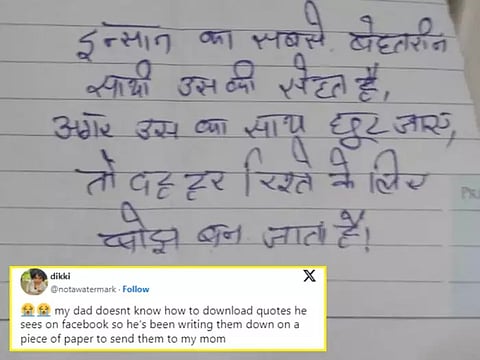 इन्सान का सबसे बेहतरीन
साथी उस की सेहत है,
अगर उस का साथ छुट जाए,
तो वह हर रिश्ते के लिए
बोझ बन जाता है!
PR
dikki
@notawatermark · Follow
X
😭😭 my dad doesnt know how to download quotes he
sees on facebook so he's been writing them down on a
piece of paper to send them to my mom